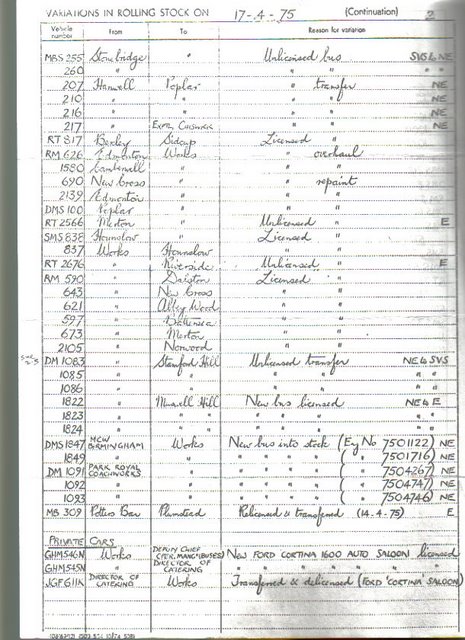 VARIATIONS IN ROLLING STOCK ON 17-4-75 (Continuation) 2
Vehicle number From To Reason for variation
MBS 255 Stonebridge " Unlicensed bus SVS to NE
260 " " " " " "
207 Hanwell Poplar " transfer NE
210 " " " " NE
216 " " " " NE
217 " EXPTL CHISWICK " " NE
RT 817 Bexley Sidcup Licensed "
RM 626 Edmonton Works " overhaul
1580 Camberwell " " "
690 New Cross " " repaint
2139 Edmonton " " "
DMS 100 Poplar " " "
RT 2566 Merton " Unlicensed " E
SMS 838 Hounslow " Licensed "
837 Works Hounslow " "
RT 2676 " Riverside Unlicensed " E
RM 590 " Dalston Licensed "
643 " New Cross " "
621 " Abbey Wood " "
597 " Battersea " "
673 " Merton " "
2105 " Norwood " "
DM 1083 " Stamford Hill Unlicensed transfer NE to SVS
1085 " " " " " "
1086 " " " " " "
1822 " Muswell Hill New bus licensed NE to E
1823 " " " " " " " "
1824 " " " " " " " "
DMS 1847 MCW BIRMINGHAM Works New bus into stock (Eng No 7501122) NE
1849 " " " " " " ( " " 7501716) NE
DM 1091 PARK ROYAL COACHWORKS " " " " " ( " " 7504267) NE
1092 " " " " " " ( " " 7504747) NE
1093 " " " " " " ( " " 7504746) NE
MB 309 Potters Bar Plumstead Relicensed & transferred (14-4-75) E
PRIVATE CARS
GHM 546N Works DEPUTY CHIEF OPER. MANG(BUSES) NEW FORD CORTINA 1600 AUTO SALOON licensed
GHM 545N " DIRECTOR OF CATERING " " " " " "
JGF 611K DIRECTOR OF CATERING Works Transferred & delicensed (FORD CORTINA SALOON)